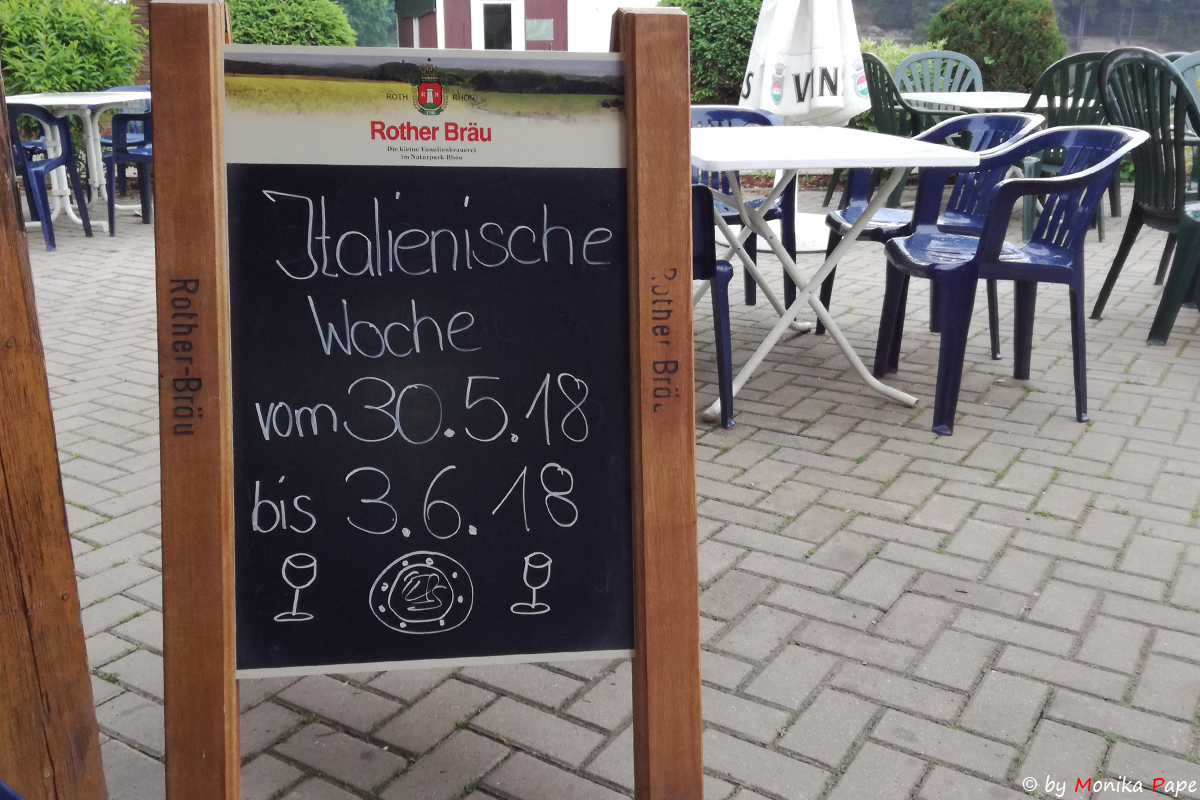 ROTH RHÖN
Rother Bräu
Die kleine Familienbrauerei
im Naturpark Rhön
Italienische
Woche
vom 30.5.18
bis 3.6.18
Rother-Bräu
Rother Bräu
VIN
© by Monika Pape